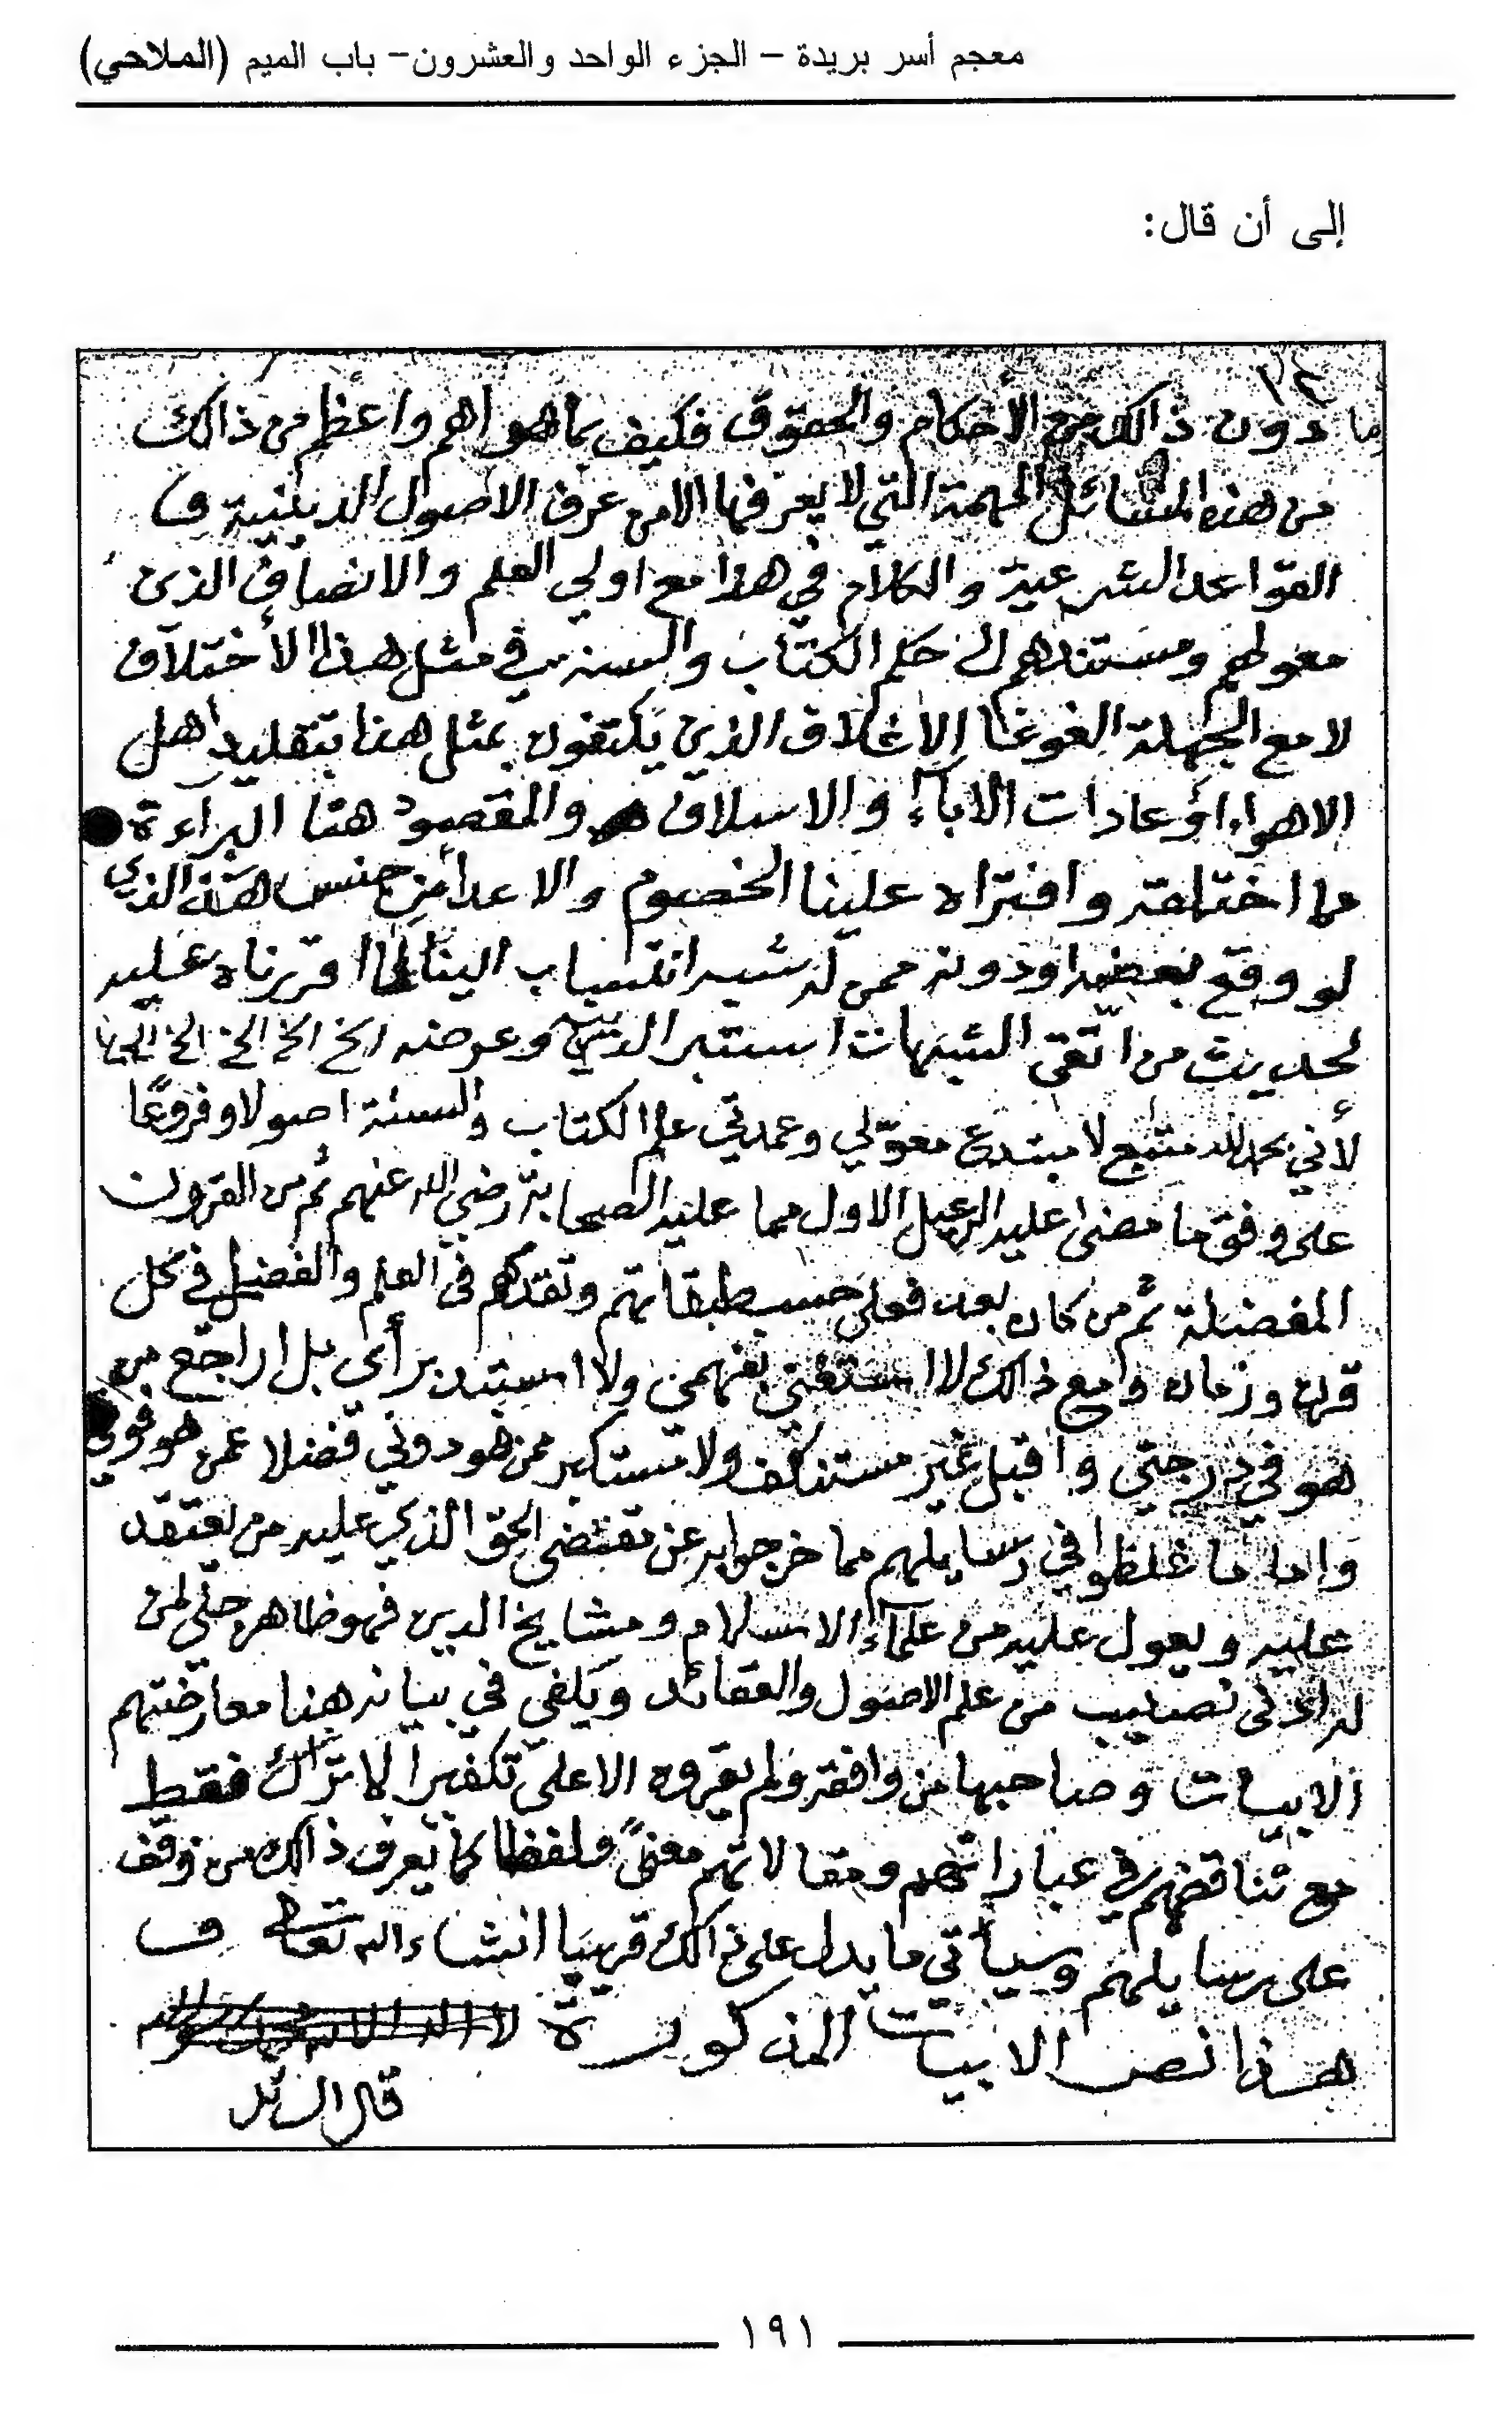 معجم أسر بريدة – الجزء الواحد والعشرون– باب الميم (الملاحي)
إلى أن قال:
ما دون ذالك من الأحكام والحقوق فكيف بما هو اهم واعظم من ذالك
من هذه المسائل المهمة التي لا يعرفها الا من عرف الاصول الدينية و
القواعد الشرعية والكلام في هذا مع اولي العلم والانصاف الذين
معولهم ومستندهم الى حكم الكتاب والسنه في مثل هذا الاختلاف
لا مع الجهلة الغوغا الاغلاق الذين يكتفون بمثل هذا بتقليد اهل
الاهواء او عادات الآباء والاسلاف والمقصود هنا البراءة
مما اختلقه وافتراه علينا الخصوم والاعدا من جنس هذه الذي
لو وقع بعضه او دونه ممن له شبه انتساب الينا لما اقررناه عليه
لحديث من اتقى الشبهات استبر الدينه وعرضه الخ الخ الخ الخ
لأني بحمد الله متبع لا مبتدع معوّلي وعمدتي علم الكتاب والسنة اصولا وفروعًا
على وفق ما مضى عليه الرعيل الاول مما عليه الصحابة رضي الله عنهم ثم من القرون
المفضلة ثم من كان بعد فعلى حسب طبقاتهم وتقدمهم في العلم والفضل في كل
قرن وزمان ومع ذالك لا استغني بفهمي ولا استبد برأي بل اراجع من
هو في درجتي واقبل غير مستنكف ولا مستكبر ممن هو دوني فضلا عمن هو فوقي
وإما ما غلظوا في رسايلهم مما خرجوا به عن مقتضى الحق الذي عليه من يعتقد
عليه ويعول عليه من علمآء الاسلام ومشايخ الدين فهو ظاهر جلي لمن
له ادنى نصيب من علم الاصول والعقائد ويكفي في بيانه هنا معارضتهم
الابيات وصاحبها من وافقه ولم يقروه الا على تكفير الاتراك فقط
مع تناقضهم في عباراتهم ومقالاتهم معنىً ولفظا كما يعرف ذالك من وقف
على رسايلهم وسيأتي ما يدل على ذالك قريبا انشاء الله تعالى و
هذا نص الابيات المذكورة
١٩١